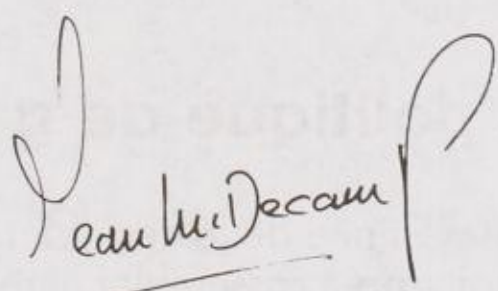 Jean M. Decamp